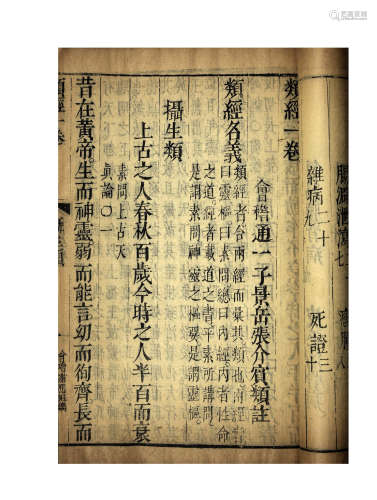 雜病二十九
死證三十
類經一卷
會稽通一子景岳張介賓類註
類經名義
類經者合兩經而彙其類也兩經
曰靈樞曰素問總曰內經內者性命
之道經者載道之書平素所講問
是謂素問神靈之樞要是謂靈樞
攝生類
上古之人春秋百歲今時之人半百而衰
素問上古天
眞論〇一
昔在黃帝生而神靈弱而能言幼而徇齊長而
類經一卷